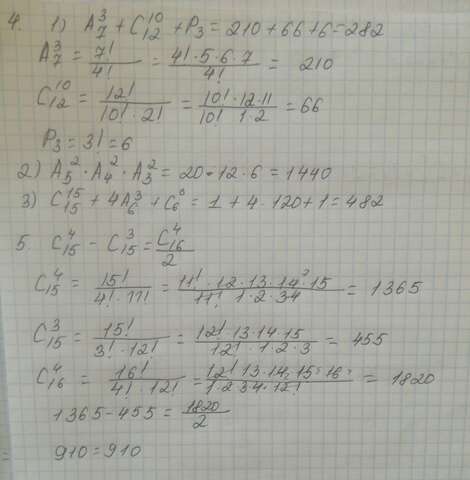 4. 1) A₇³ + C₁₂¹⁰ + P₃ = 210 + 66 + 6 = 282
A₇³ = 7!/4! = 4!·5·6·7/4! = 210
C₁₂¹⁰ = 12!/10!·2! = 10!·12·11/10! 1·2 = 66
P₃ = 3! = 6
2) A₅² · A₄² · A₃² = 20·12·6 = 1440
3) C₁₅¹⁵ + 4A₆³ + C₆⁰ = 1 + 4·120 + 1 = 482
5. C₁₅⁴ - C₁₅³ = C₁₆⁴/2
C₁₅⁴ = 15!/4!·11! = 11!·12·13·14·15/11! 1·2·3 4 = 1365
C₁₅³ = 15!/3!·12! = 12!·13·14·15/12! 1·2·3 = 455
C₁₆⁴ = 16!/4!·12! = 12! 13·14·15·16/1·2·3·4·12! = 1820
1365 - 455 = 1820/2
910 = 910